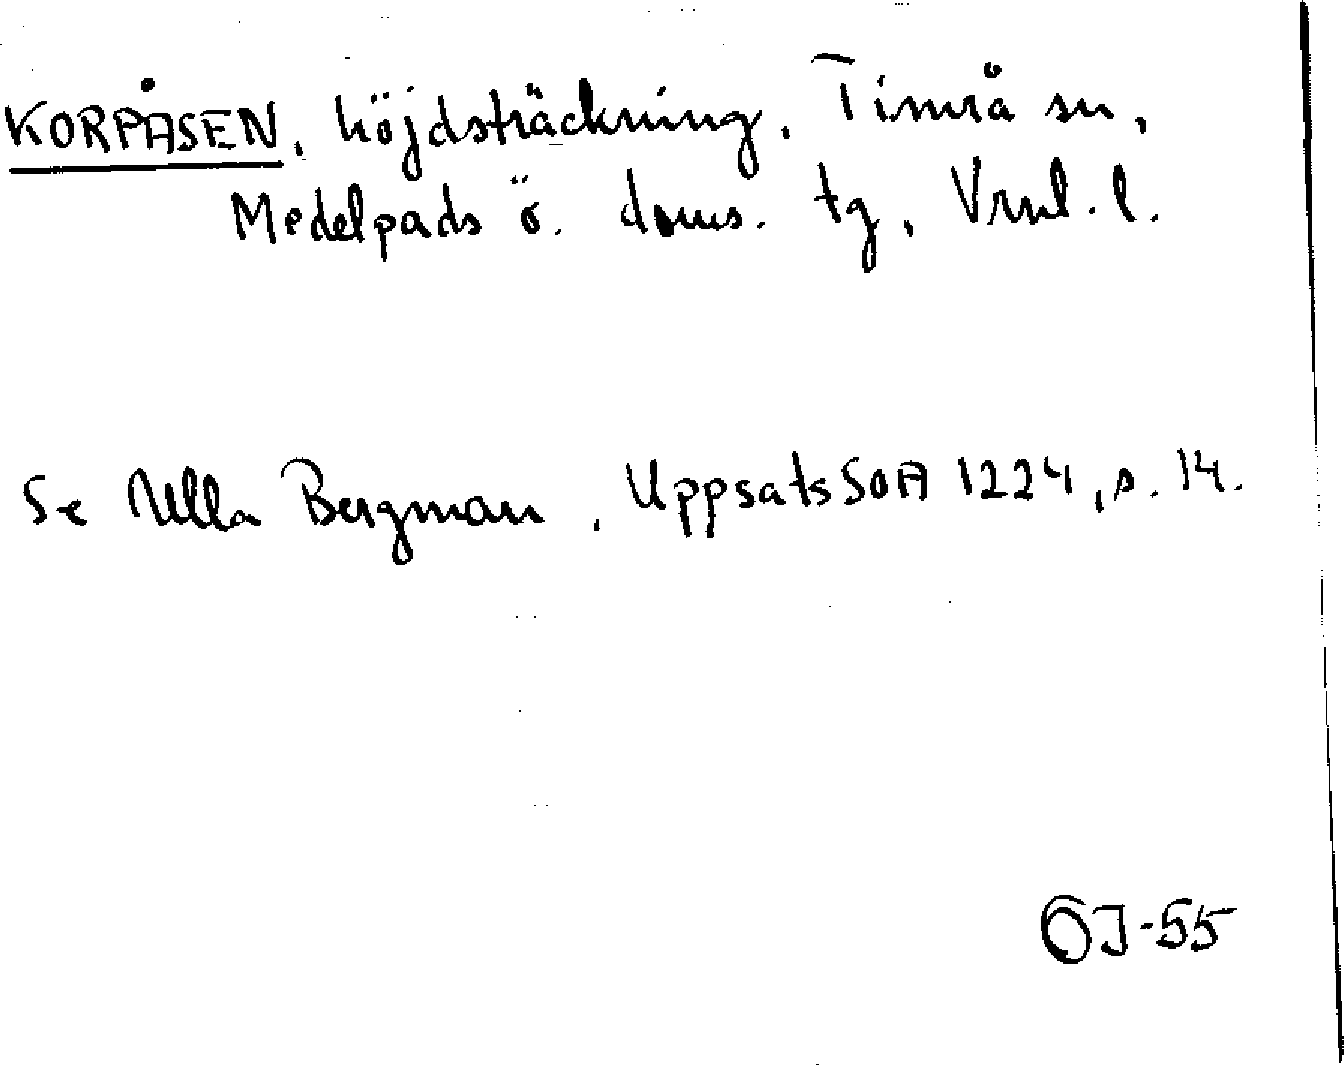 KORPÅSEN, höjdsträckning, Timrå sn,
Medelpads ö. doms. tg, Vrnl. l.
Se Ulla Bergman, Uppsats SOA 1224, s. 14.
OJ-55